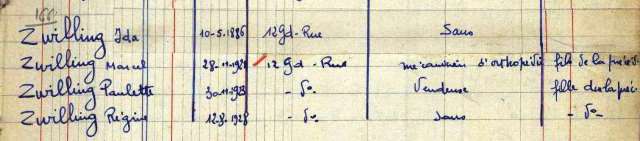 166.
Zwilling Ida 10-5-1896 12 Gd-Rue Sans
Zwilling Marcel 28-11-1921 12 Gd-Rue mécanicien d'orthopédie fils de la précéd.
Zwilling Paulette 30-11-1923 -do- Vendeuse fille de la préc.
Zwilling Régine 12.8.1928 -do- sans -do-